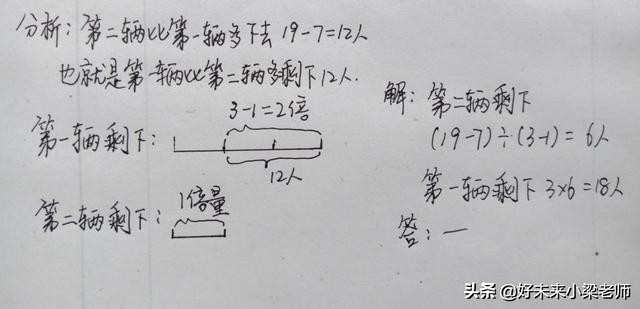 分析：第二辆比第一辆多下去 19-7=12人
也就是第一辆比第二辆多剩下12人.
3-1=2倍
第一辆剩下：
12人
1倍量
第二辆剩下：
解：第二辆剩下
(19-7)÷(3-1)= 6人
第一辆剩下 3×6=18人
答：一
头条 @好未来小梁老师